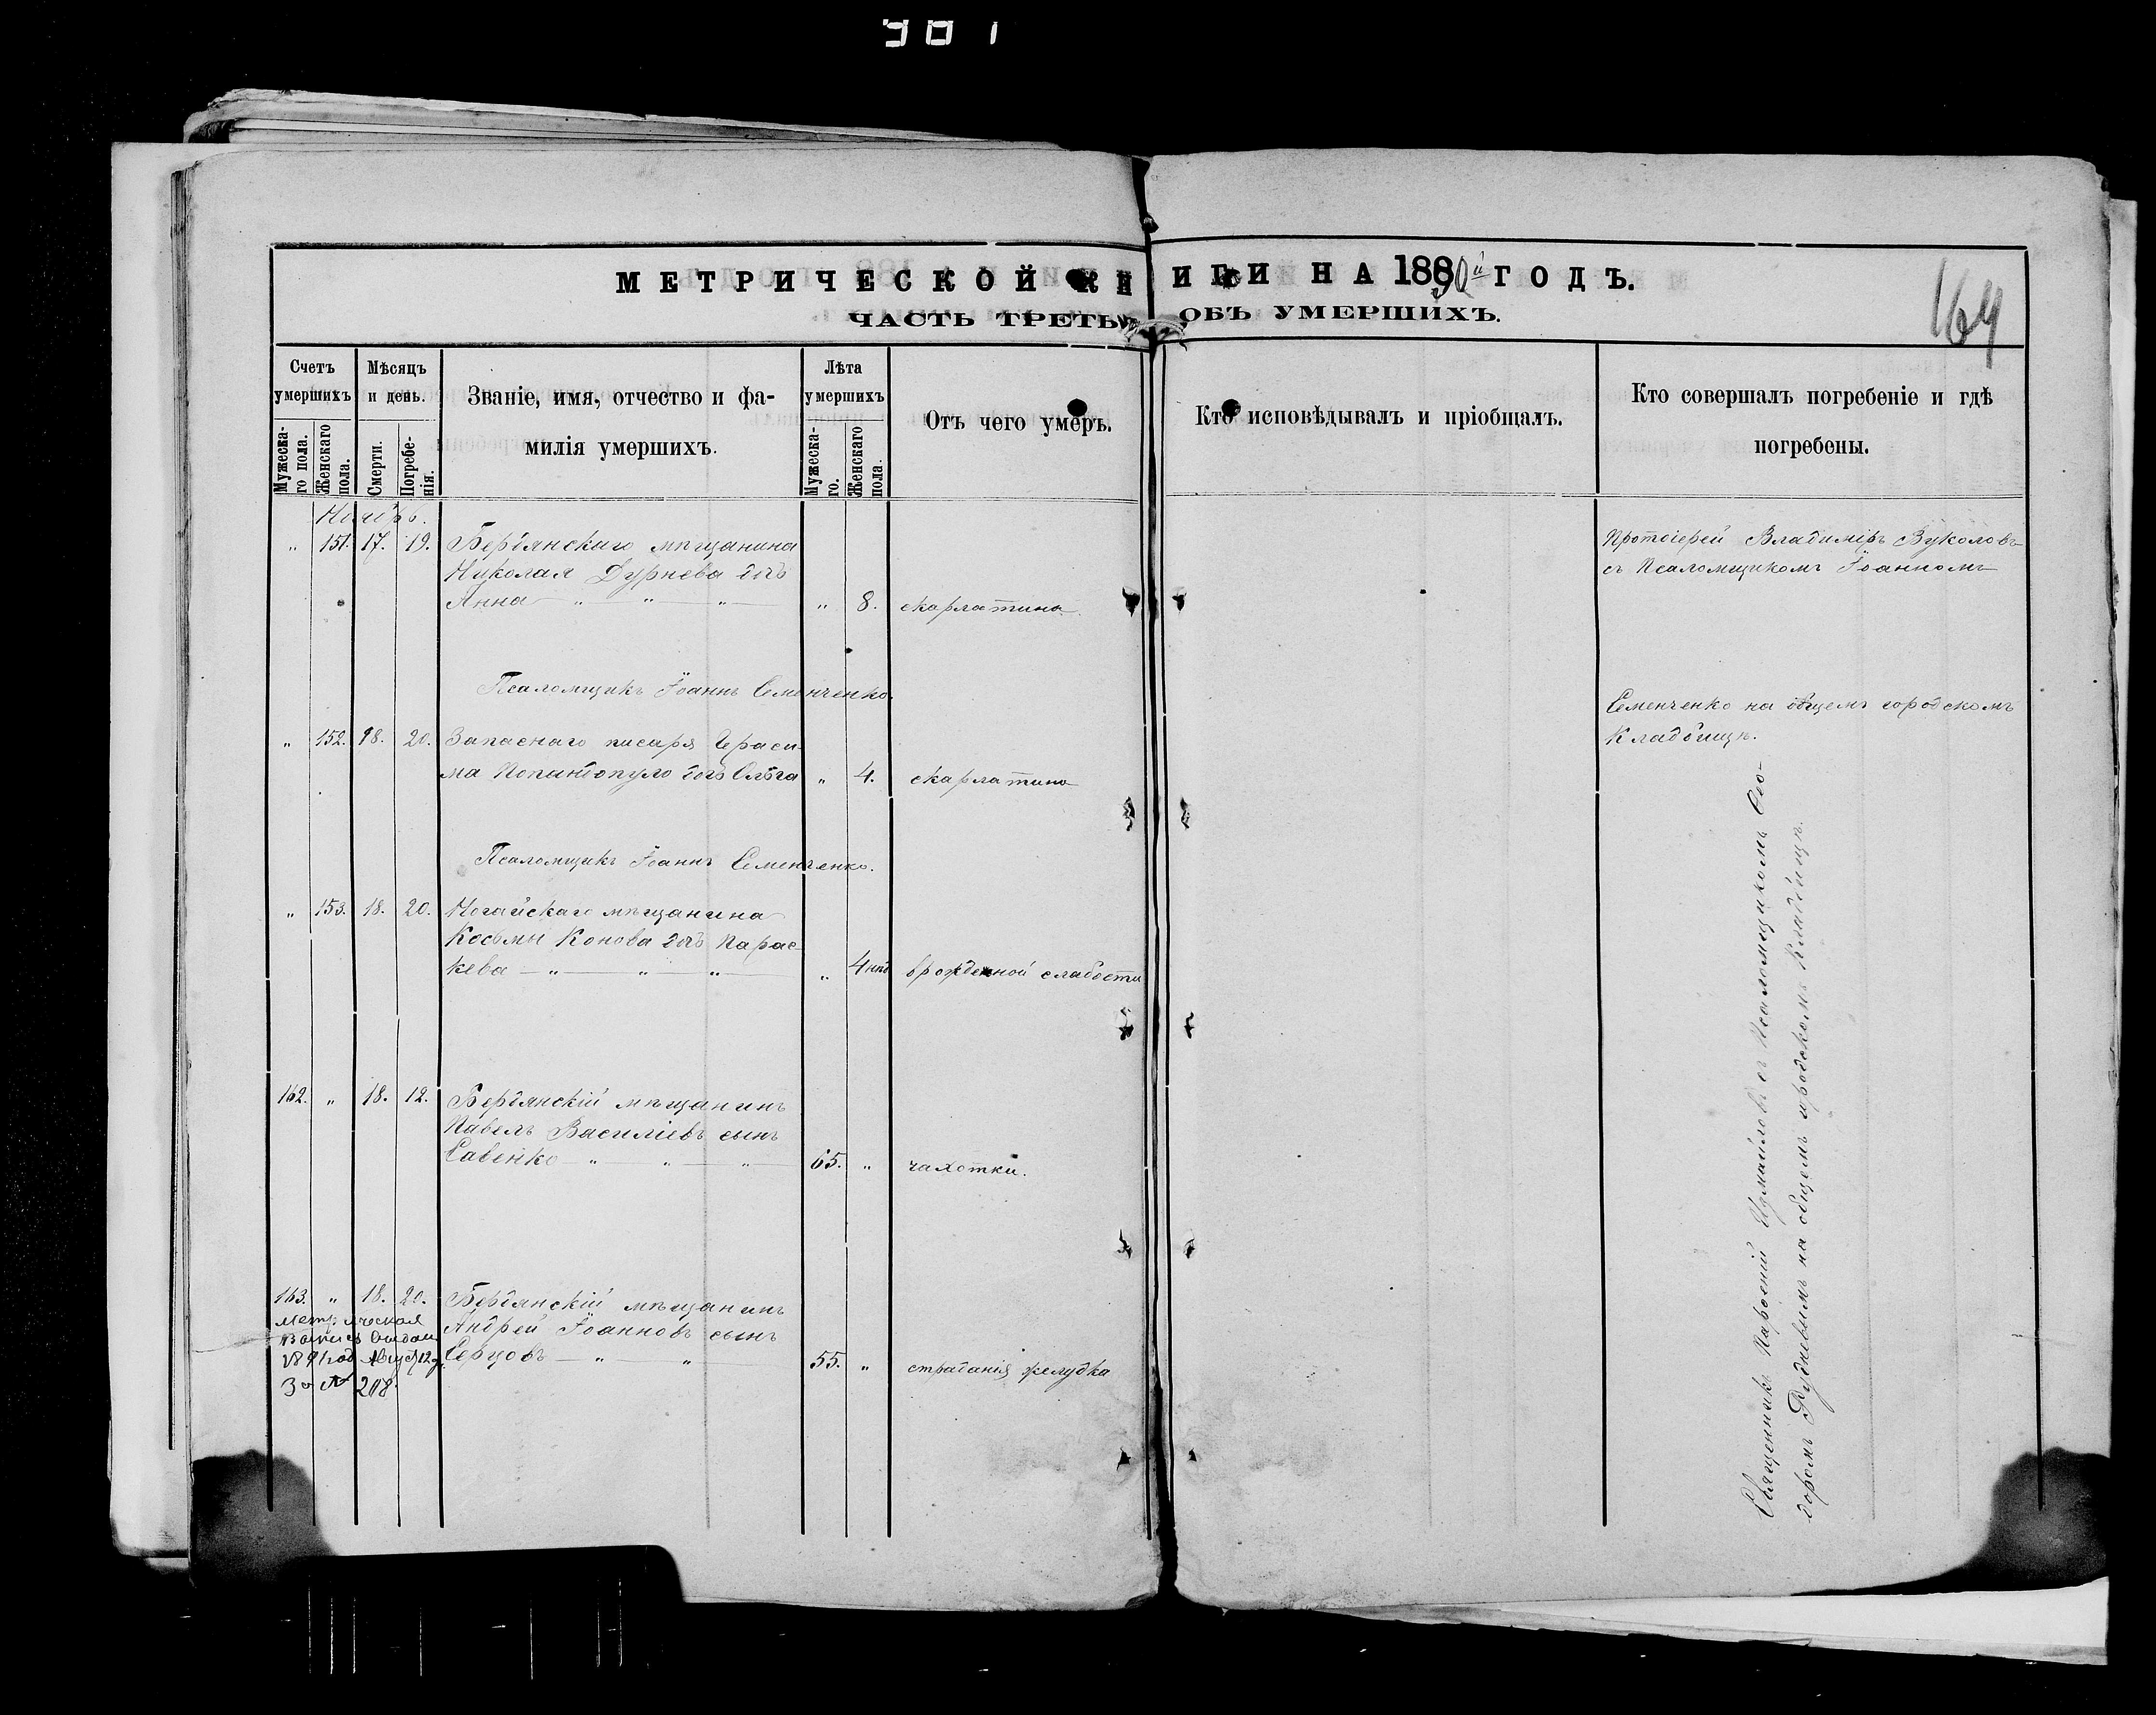 МЕТРИЧЕСКОЙ КН
ИГИ НА 1890й ГОДЪ.
164
ЧАСТЬ ТРЕТЬЯ
ОБЪ УМЕРШИХЪ.
Счетъ умершихъ
Мужескаго пола.
Женскаго пола.
Мѣсяцъ и день.
Смерти.
Погребенія.
Званіе, имя, отчество и фа-
милія умершихъ.
Лѣта умершихъ
Мужескаго.
Женскаго пола.
Отъ чего умеръ.
Кто исповѣдывалъ и пріобщалъ.
Кто совершалъ погребеніе и гдѣ
погребены.
Ноябрь.
" 151. 17. 19. Бердянскаго мѣщанина
Николая Дурнева дочь
Анна " 8. скарлатина
Протоіерей Владиміръ Вуколовъ
съ Псаломщикомъ Іоанномъ
Псаломщикъ Іоаннъ Семенченко.
Семенченко на общемъ городскомъ
Кладбищѣ.
" 152. 18. 20. Запаснаго писаря Гераси-
ма Попандопуло дочь Ольга " 4. скарлатина
Псаломщикъ Іоаннъ Семенченко.
" 153. 18. 20. Ногайскаго мѣщанина
Косьмы Конова дочь Парас
кева " 4 нед врожденной слабости
162. " 18. 12. Бердянскій мѣщанинъ
Павелъ Василіевъ сынъ
Савенко 65. " чахотки.
163. " 18. 20. Бердянскій мѣщанинъ
Андрей Іоанновъ сынъ
Серцовъ 55. " страданія желудка
Метрическая
выдан
1891 год Август 12 д.
За № 208.
Священникъ Парѳеній Измаиловъ съ Псаломщикомъ Ѳео-
доромъ Рудневымъ на общемъ городскомъ Кладбищѣ.